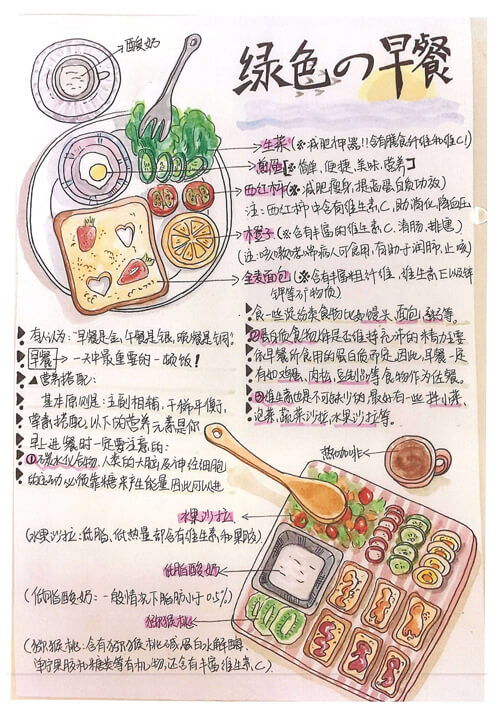 绿色の早餐
酸奶
生菜(※减肥神器!!含有膳食纤维和维C!)
煎蛋【※简单,便捷,美味,营养】
西红柿(※减肥瘦身,提高蛋白质功放)
注:西红柿中含有维生素C,助消化,降血压
木登子(※含有丰富的维生素C,清肠,排毒)
(注:咳嗽老喘病人可食用,有助于润肺,止咳)
全麦面包(※含有丰富粗纤维,维生素E以及锌
钾等矿物质)
有人认为:"早餐是金,午餐是银,晚餐是铜".
早餐→一天中最重要的一顿饭!
▲营养搭配:
基本原则是:主副相辅,干稀平衡,
营养搭配,以下的营养元素是你
早上进餐时一定要注意的:
①碳水化合物,人类的大脑及神经细胞
的运动必须靠糖来产生能量,因此可以进
食一些淀粉类食物比如馒头,面包,粥等.
②蛋白质食物人体是否维持充沛的精力主要
依早餐所食用的蛋白质而定,因此,早餐一定
有如鸡蛋,肉松,豆制品等食物作为佐餐。
③维生素也是不可缺少的,最好有一些拌小菜,
泡菜,蔬菜沙拉,水果沙拉等.
热咖啡
水果沙拉
(水果沙拉:低脂,低热量都含有维生素和果胶)
低脂酸奶
(低脂酸奶:一般情况下脂肪小于0.5%)
猕猴桃
(猕猴桃:含有猕猴桃碱,蛋白水解酶,
单宁果胶和糖类等有机物,还含有丰富维生素C)